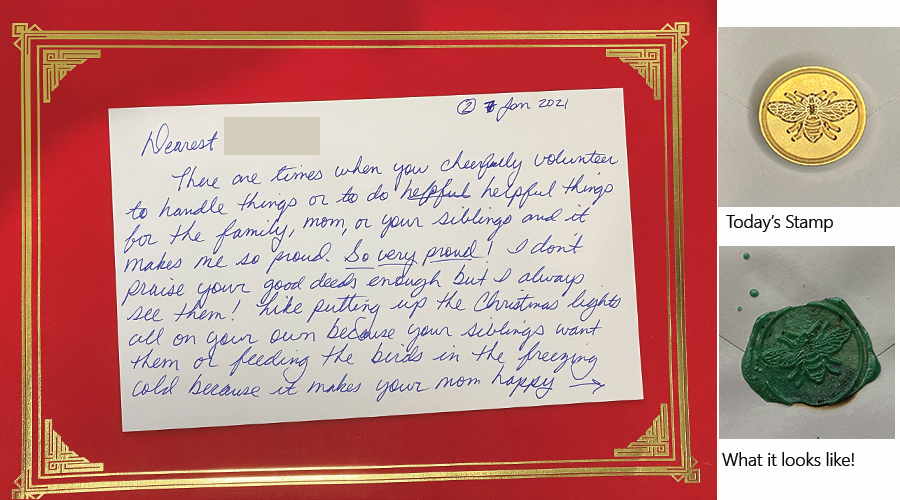 ② 7 Jan 2021
Dearest
There are times when you cheerfully volunteer
to handle things or to do helpful helpful things
for the family, mom, or your siblings and it
makes me so proud. So very proud! I don't
praise your good deeds enough but I always
see them! Like putting up the Christmas lights
all on your own because your siblings want
them or feeding the birds in the freezing
cold because it makes your mom happy →
Today's Stamp
What it looks like!